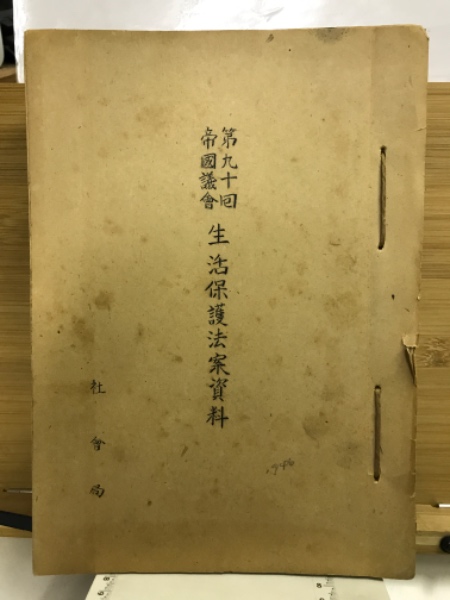 第九十回
帝國議會
生活保護法案資料
社會局
1946